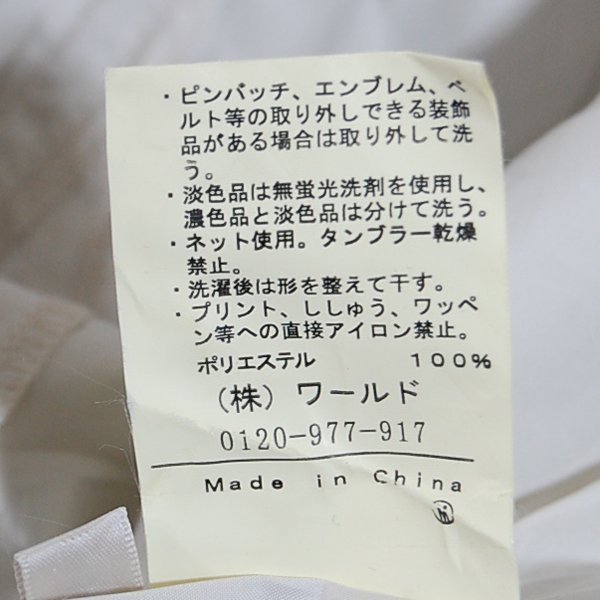 ・ピンバッチ、エンブレム、ベ
ルト等の取り外しできる装飾
品がある場合は取り外して洗
う。
・淡色品は無蛍光洗剤を使用し、
濃色品と淡色品は分けて洗う。
・ネット使用。タンブラー乾燥
禁止。
・洗濯後は形を整えて干す。
・プリント、ししゅう、ワッペ
ン等への直接アイロン禁止。
ポリエステル 100%
(株) ワールド
0120-977-917
Made in China